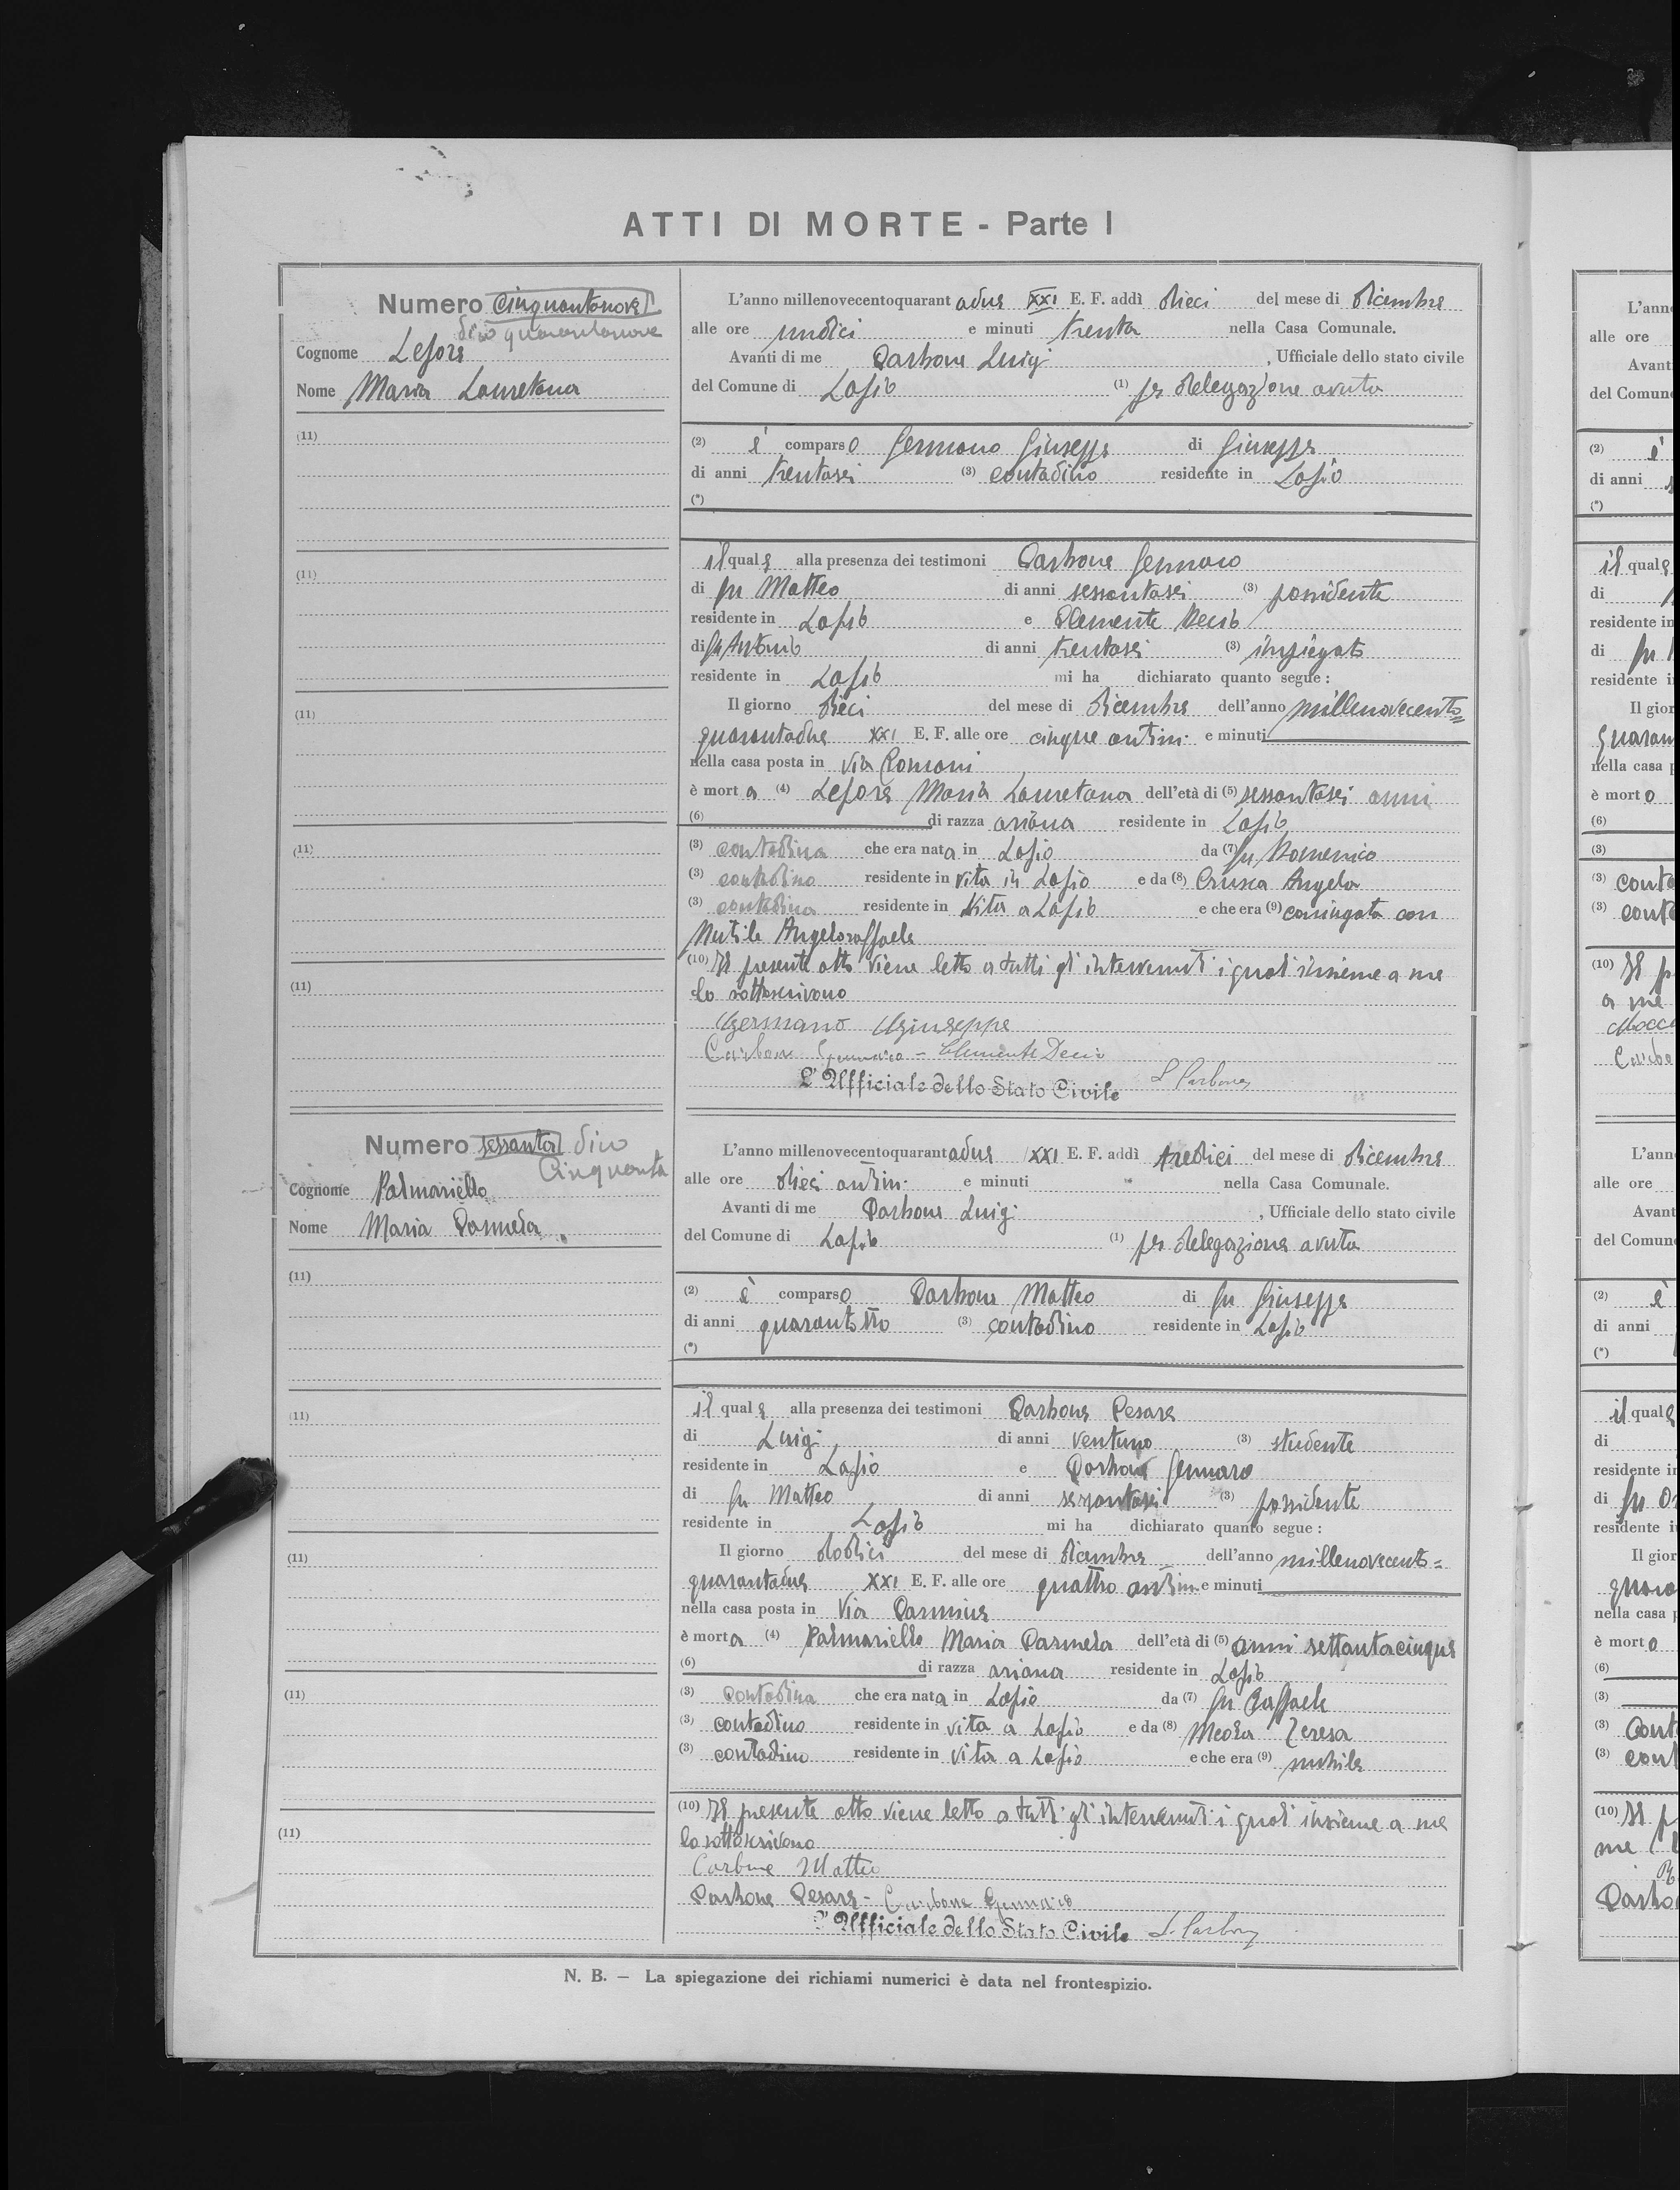 ATTI DI MORTE - Parte I
Numero Cinquantanove
dico quarantanove
Cognome Lepore
Nome Maria Lauretana
(11)
(11)
(11)
(11)
(11)
L'anno millenovecentoquarantadue XXI E. F. addì dieci del mese di dicembre
alle ore undici e minuti trenta nella Casa Comunale.
Avanti di me Carbone Luigi, Ufficiale dello stato civile
del Comune di Lapio (1) per delegazione avuta
(2) è comparso Germano Giuseppe di Giuseppe
di anni trentasei (3) contadino residente in Lapio
(*)
il quale alla presenza dei testimoni Carbone Gennaro
di fu Matteo di anni sessantasei (3) possidente
residente in Lapio e Clemente Decio
di fu Antonio di anni trentasei (3) impiegato
residente in Lapio mi ha dichiarato quanto segue :
Il giorno dieci del mese di dicembre dell'anno millenovecento=
quarantadue XXI E. F. alle ore cinque antim. e minuti
nella casa posta in via Romani
è morta (4) Lepore Maria Lauretana dell'età di (5) sessantasei anni
(6) di razza ariana residente in Lapio
(3) contadina che era nata in Lapio da (7) fu Domenico
(3) contadino residente in vita in Lapio e da (8) Crusca Angela
(3) contadina residente in vita a Lapio e che era (9) coniugata con
Mutile Angeloraffaele
(10) Il presente atto viene letto a tutti gli intervenuti i quali insieme a me
lo sottoscrivono
Germano Giuseppe
Carbone Gennaro - Clemente Decio
L'Ufficiale dello Stato Civile L. Carbone
Numero sessanta dico
Cinquanta
Cognome Palmariello
Nome Maria Carmela
(11)
(11)
(11)
(11)
(11)
L'anno millenovecentoquarantadue XXI E. F. addì tredici del mese di dicembre
alle ore dieci antim. e minuti " nella Casa Comunale.
Avanti di me Carbone Luigi, Ufficiale dello stato civile
del Comune di Lapio (1) per delegazione avuta
(2) è comparso Carbone Matteo di fu Giuseppe
di anni quarantotto (3) contadino residente in Lapio
(*)
il quale alla presenza dei testimoni Carbone Cesare
di Luigi di anni ventuno (3) studente
residente in Lapio e Carbone Gennaro
di fu Matteo di anni sessantasei (3) possidente
residente in Lapio mi ha dichiarato quanto segue :
Il giorno dodici del mese di dicembre dell'anno millenovecento=
quarantadue XXI E. F. alle ore quattro antim e minuti
nella casa posta in Via Carmine
è morta (4) Palmariello Maria Carmela dell'età di (5) anni settantacinque
(6) di razza ariana residente in Lapio
(3) Contadina che era nata in Lapio da (7) fu Raffaele
(3) contadino residente in vita a Lapio e da (8) Meola Teresa
(3) contadina residente in vita a Lapio e che era (9) nubile
(10) Il presente atto viene letto a tutti gli intervenuti i quali insieme a me
lo sottoscrivono
Carbone Matteo
Carbone Cesare - Carbone Gennaro
L'Ufficiale dello Stato Civile L. Carbone
N. B. — La spiegazione dei richiami numerici è data nel frontespizio.